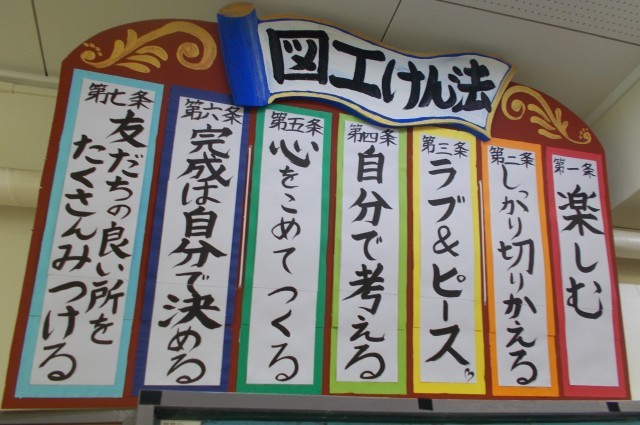 図工けんぽ法
第一条
楽しむ
第二条
しっかり切りかえる
第三条
ラブ&ピース
第四条
自分で考える
第五条
心をこめてつくる
第六条
完成は自分で決める
第七条
友だちの良い所を
たくさんみつける